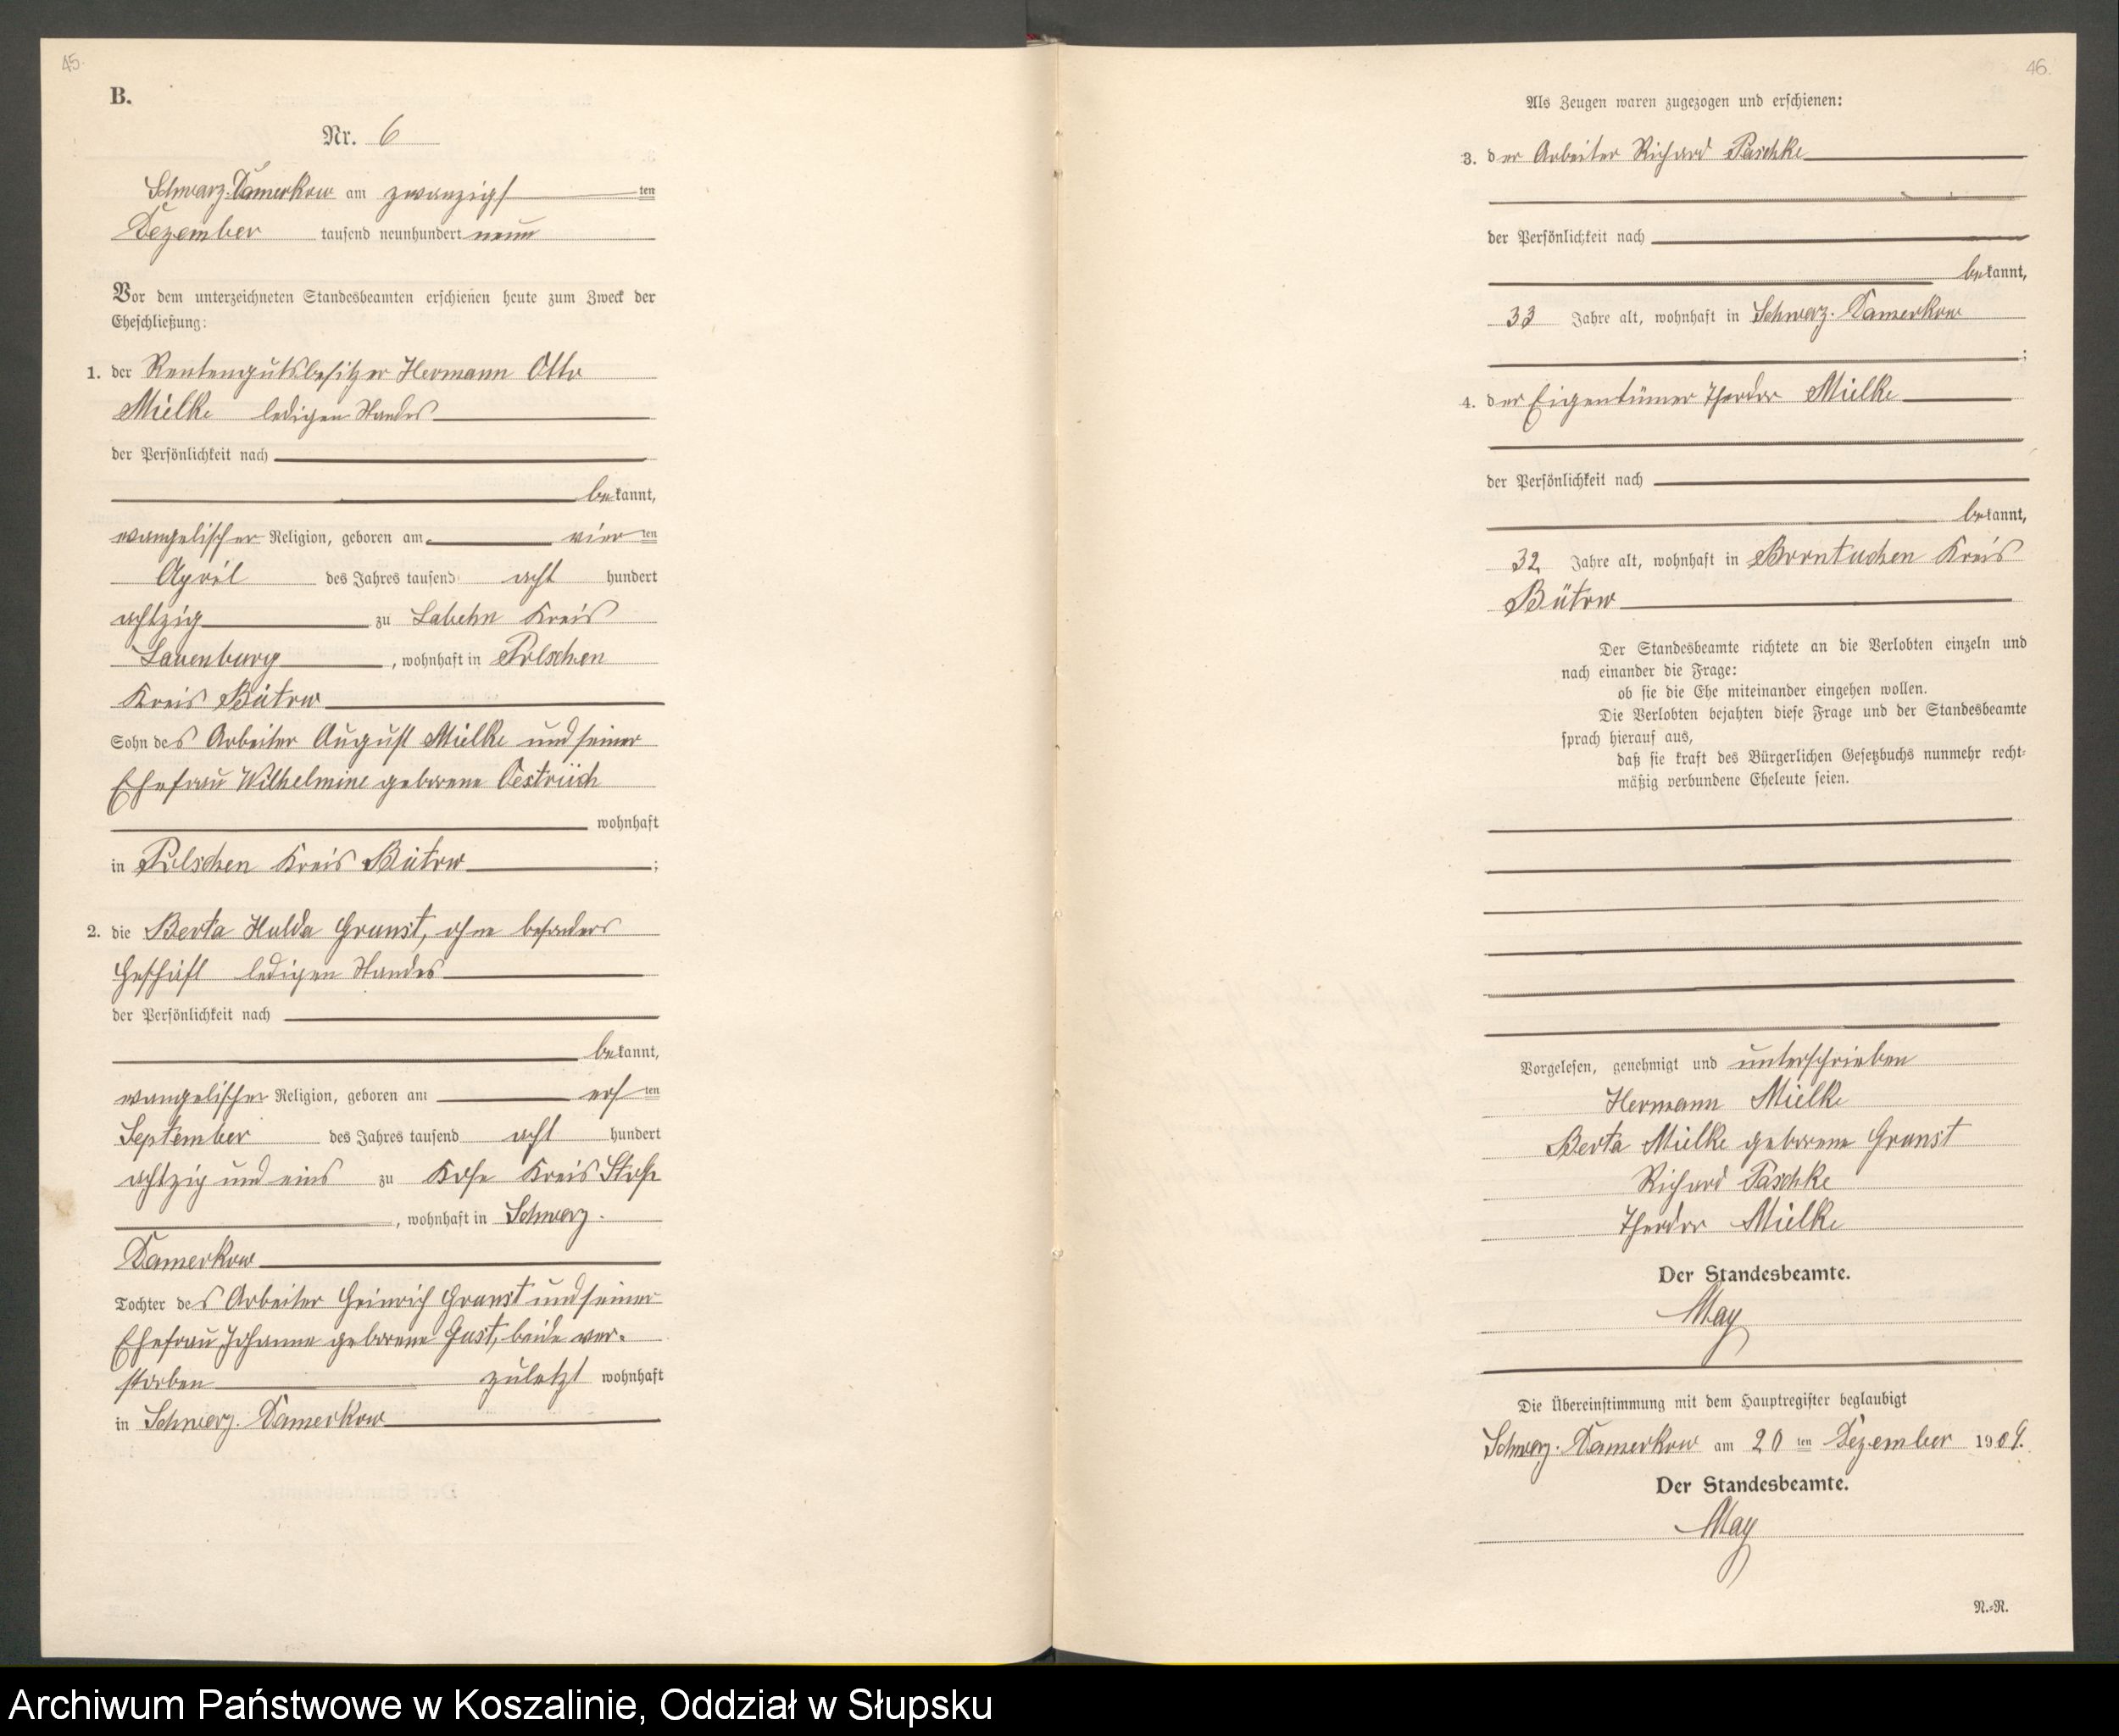 45.
B.
Nr. 6
Schwarz-Damerkow am zwanzigsten
Dezember tausend neunhundert neun
Vor dem unterzeichneten Standesbeamten erschienen heute zum Zweck der
Eheschließung:
1. der Rentengutsbesitzer Hermann Otto
Mielke ledigen Standes
der Persönlichkeit nach
bekannt,
evangelischer Religion, geboren am vierten
April des Jahres tausend acht hundert
achtzig zu Labehn Kreis
Lauenburg, wohnhaft in Polschen
Kreis Bütow
Sohn des Arbeiter August Mielke und seiner
Ehefrau Wilhelmine geborene Oestriich
wohnhaft
in Polschen Kreis Bütow;
2. die Berta Hulda Granst, ohne besonders
Geschäft ledigen Standes
der Persönlichkeit nach
bekannt,
evangelischer Religion, geboren am ersten
September des Jahres tausend acht hundert
achtzig und eins zu Kose Kreis Stolp
, wohnhaft in Schwarz-
Damerkow
Tochter des Arbeiter Heinrich Granst und seiner
Ehefrau Johanne geborene Gust, beide ver-
storben zuletzt wohnhaft
in Schwarz-Damerkow
46.
Als Zeugen waren zugezogen und erschienen:
3. der Arbeiter Richard Paschke
der Persönlichkeit nach
bekannt,
33 Jahre alt, wohnhaft in Schwarz-Damerkow
;
4. der Eigentümer Theodor Mielke
der Persönlichkeit nach
bekannt,
32 Jahre alt, wohnhaft in Borntuchen Kreis
Bütow
Der Standesbeamte richtete an die Verlobten einzeln und
nach einander die Frage:
ob sie die Ehe miteinander eingehen wollen.
Die Verlobten bejahten diese Frage und der Standesbeamte
sprach hierauf aus,
daß sie kraft des Bürgerlichen Gesetzbuchs nunmehr recht-
mäßig verbundene Eheleute seien.
Vorgelesen, genehmigt und unterschrieben
Hermann Mielke
Berta Mielke geborene Granst
Richard Paschke
Theodor Mielke
Der Standesbeamte.
May
Die Übereinstimmung mit dem Hauptregister beglaubigt
Schwarz-Damerkow am 20ten Dezember 1909.
Der Standesbeamte.
May
N.-R.
Archiwum Państwowe w Koszalinie, Oddział w Słupsku